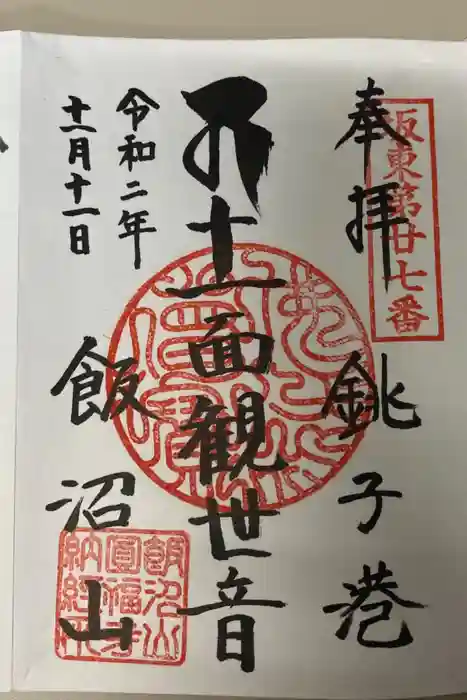 坂東第廿七番
奉拝
銚子港
十一面観世音
令和二年
十一月十一日
飯沼山
飯沼山
圓福寺
納経所